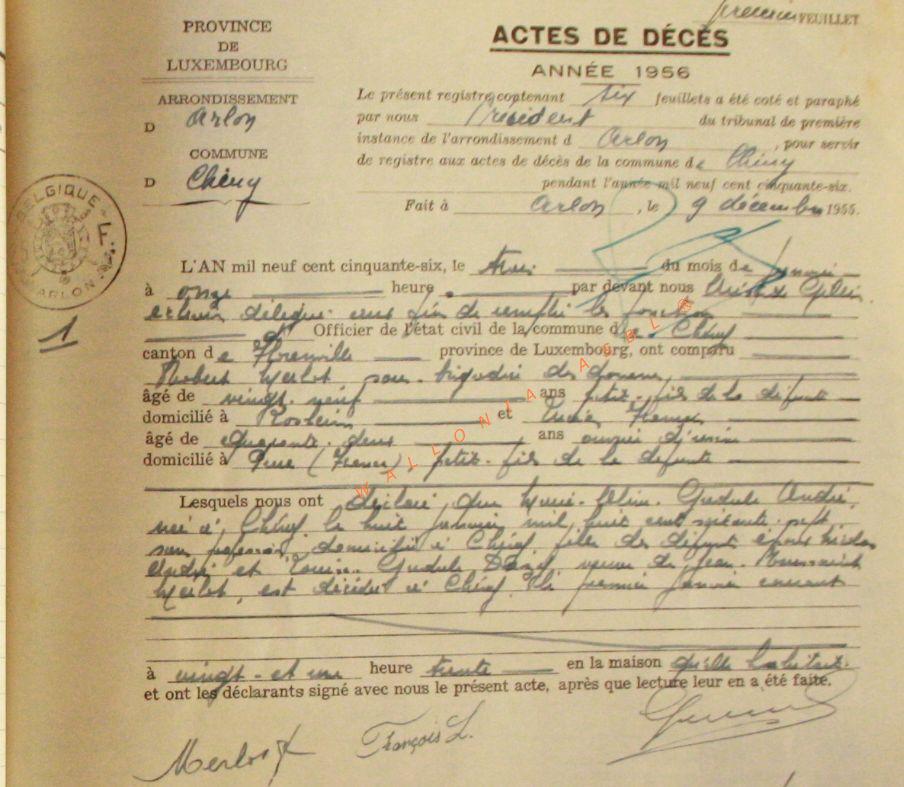 premier FEUILLET
PROVINCE
DE
LUXEMBOURG
ACTES DE DÉCÈS
ANNÉE 1956
ARRONDISSEMENT
D Arlon
COMMUNE
D
Le présent registre contenant six feuillets a été coté et paraphé
par nous Président du tribunal de première
instance de l'arrondissement d Arlon, pour servir
de registre aux actes de décès de la commune de
pendant l'année mil neuf cent cinquante-six.
Fait à Arlon, le 9 décembre 1955.
BELGIQUE F.
ARLON
1
L'AN mil neuf cent cinquante-six, le trois du mois de janvier
à onze heure par devant nous
échevin délégué aux fin de remplir les fonctions
d' Officier de l'état civil de la commune de
canton de province de Luxembourg, ont comparu
Robert Merlot, sous-brigadier des douanes,
âgé de vingt-neuf ans petit-fils de la défunte
domicilié à et
âgé de quarante-deux ans ouvrier d'usine
domicilié à (France), petit-fils de la défunte
Lesquels nous ont déclaré, que Gudule André,
née à, le huit janvier mil huit cent soixante-sept
sans profession, domiciliée à, fille des défunts époux Nicolas
André et Gudule, veuve de Jean
Merlot, est décédée à le premier janvier courant
à vingt-et-une heure trente en la maison qu'elle habitait.
et ont les déclarants signé avec nous le présent acte, après que lecture leur en a été faite.
WALLONIA ASBL
Merlot François L.